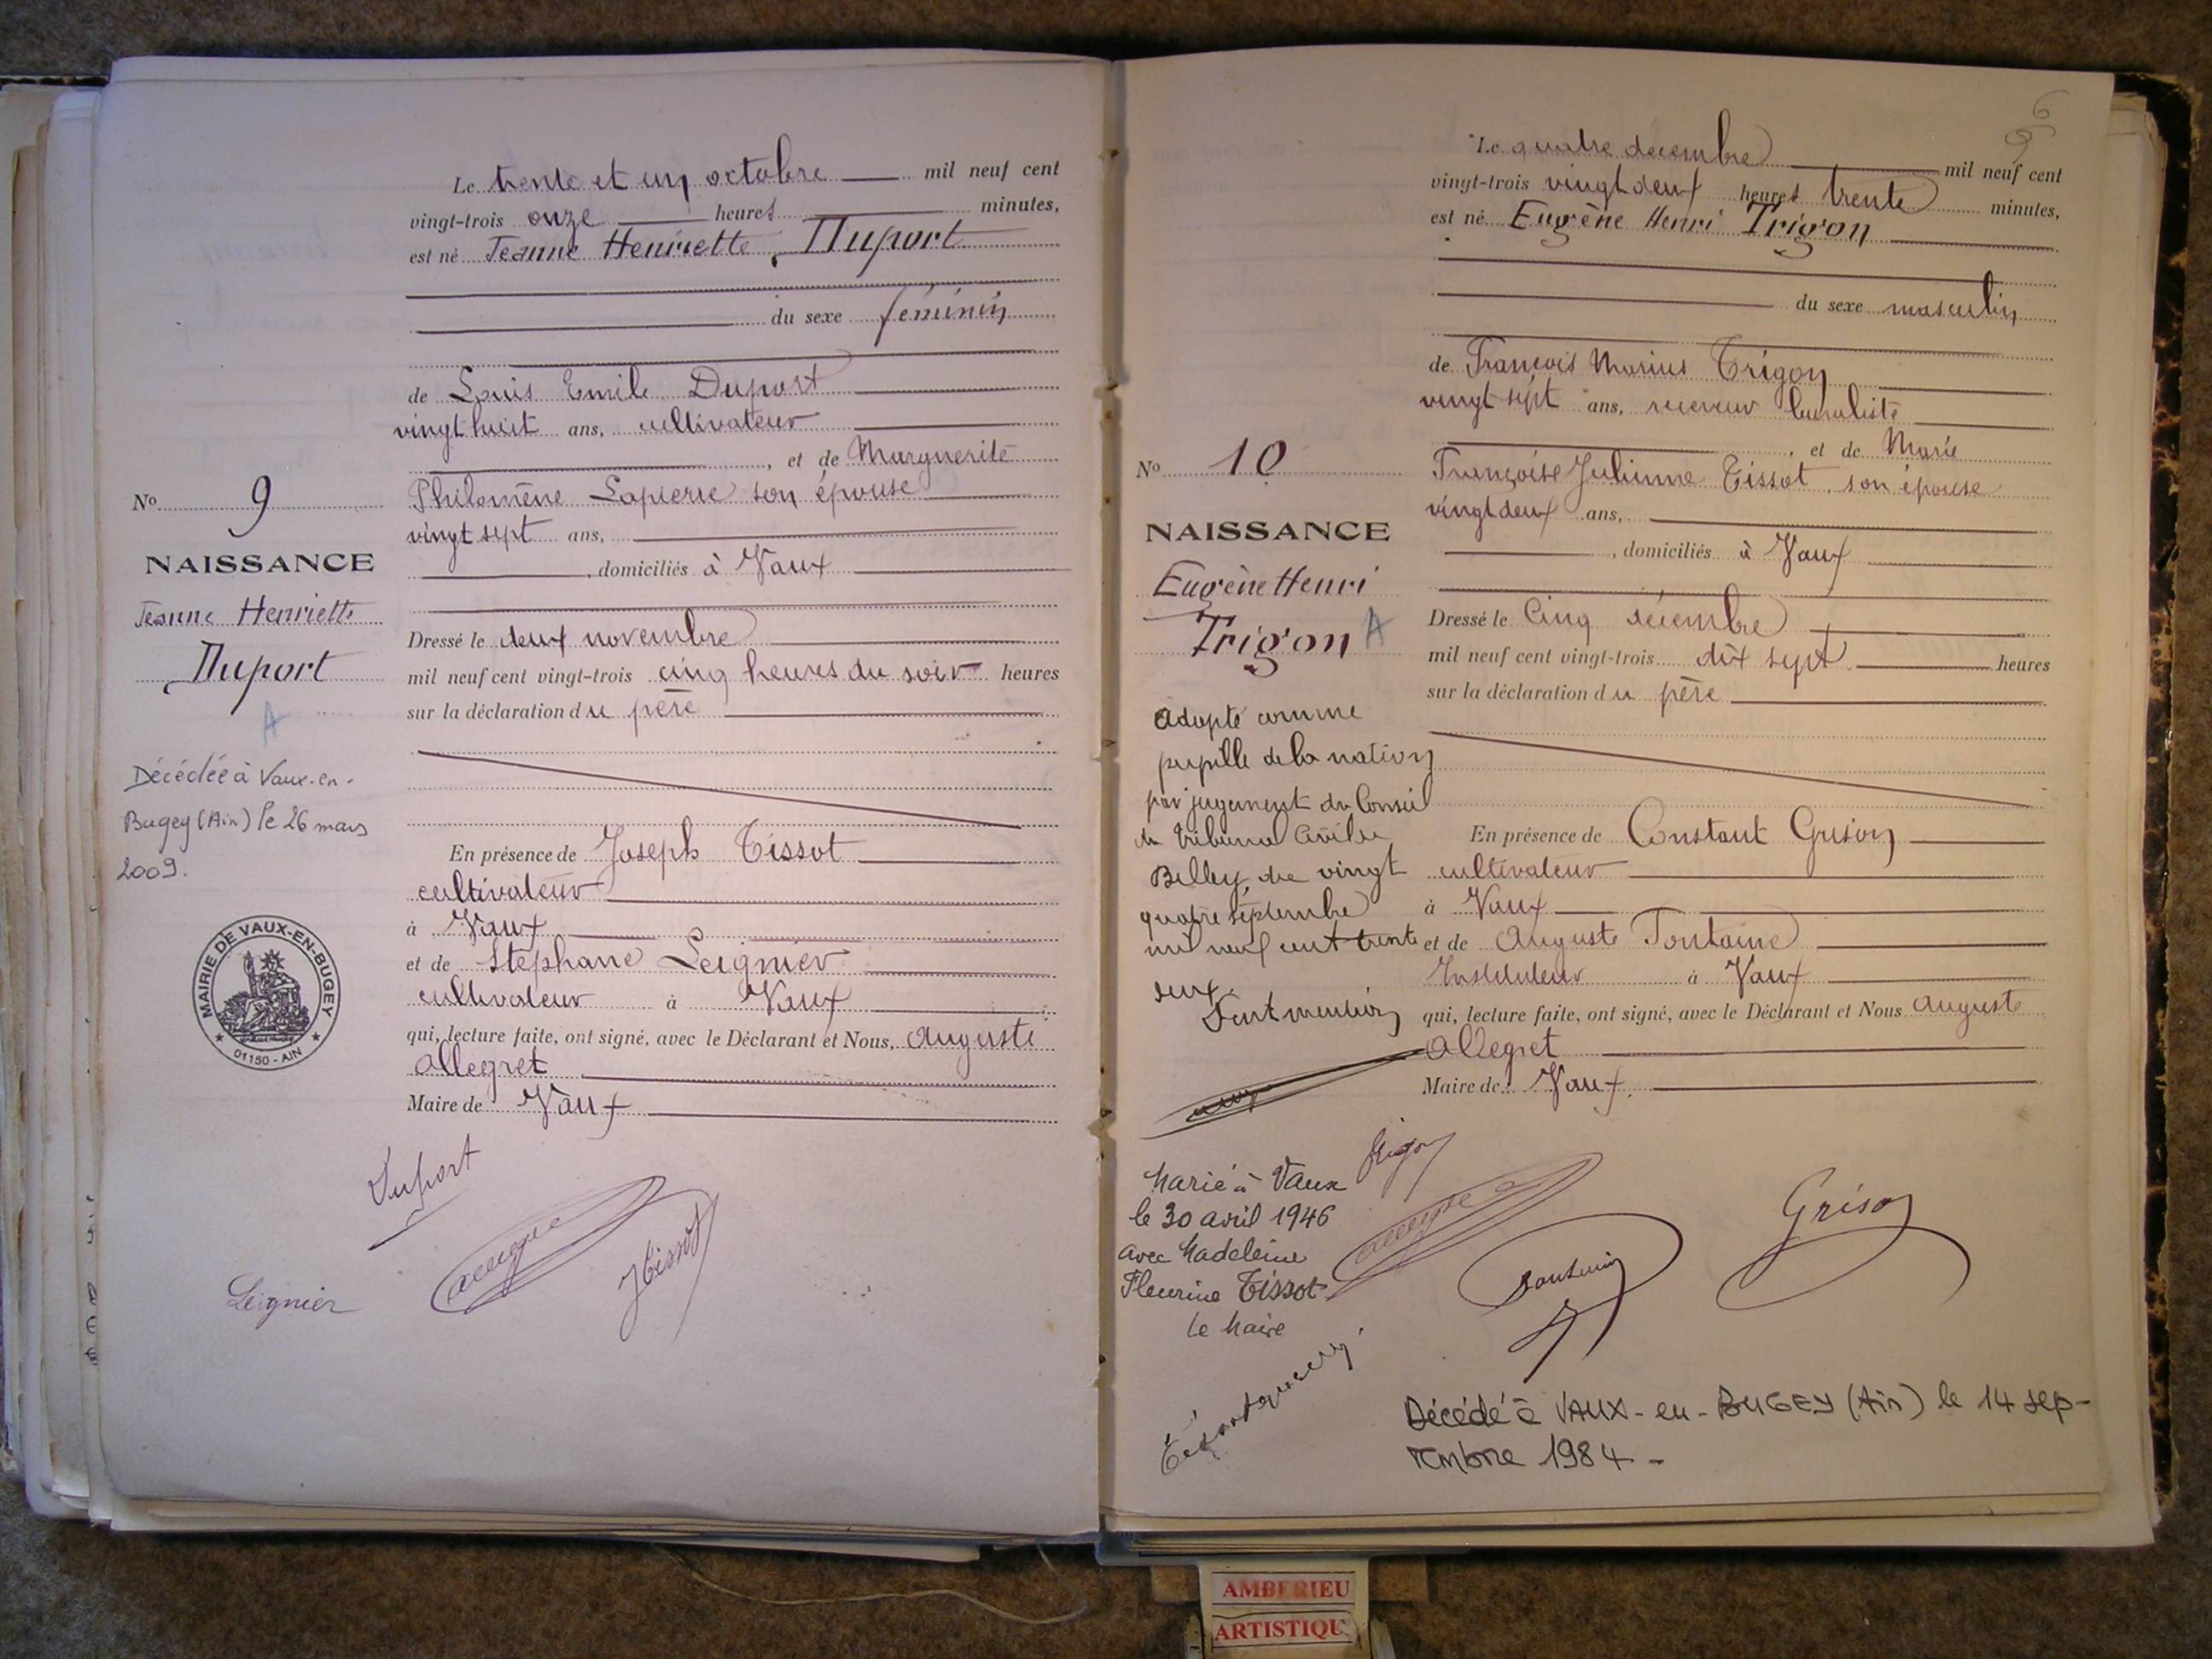 Le trente et un octobre mil neuf cent
vingt-trois onze heures minutes,
est né Jeanne Henriette Duport
du sexe féminin
de Louis Emile Duport
vingt huit ans, cultivateur
, et de Marguerite
Philomène Lapierre son épouse
vingt sept ans,
, domiciliés à Vaux
Dressé le deux novembre
mil neuf cent vingt-trois cinq heures du soir heures
sur la déclaration du père
En présence de Joseph Tissot
cultivateur
à Vaux
et de Stéphane Leignier
cultivateur à Vaux
qui, lecture faite, ont signé, avec le Déclarant et Nous, Auguste
Allegret
Maire de Vaux
No 9
NAISSANCE
Jeanne Henriette
Duport
A
Décédée à Vaux-en-
Bugey (Ain) le 26 mars
2009.
MAIRIE DE VAUX-EN-BUGEY
01150 - AIN
Duport
Allegret
JTissot
Leignier
Le quatre décembre mil neuf cent
vingt-trois vingt deux heures trente minutes,
est né Eugène Henri Trigon
du sexe masculin
de François Marius Trigon
vingt sept ans, receveur buraliste
, et de Marie
Françoise Julienne Tissot son épouse
vingt deux ans,
, domiciliés à Vaux
Dressé le Cinq décembre
mil neuf cent vingt-trois dix sept heures
sur la déclaration du père
En présence de Constant Grison
cultivateur
à Vaux
et de Auguste Fontaine
Instituteur à Vaux
qui, lecture faite, ont signé, avec le Déclarant et Nous Auguste
Allegret
Maire de Vaux
No 10
NAISSANCE
Eugène Henri
Trigon A
Adopté comme
pupille de la nation
par jugement du Conseil
du Tribunal Civil de
Belley du vingt
quatre septembre
mil neuf cent trente
deux.
Dont mention
Marié à Vaux
le 30 avril 1946
avec Madeleine
Fleurine Tissot
Le Maire
Trigon
Allegret
Fontaine
Grison
Décédé à VAUX-en-BUGEY (Ain) le 14 sep-
tembre 1984 -
AMBERIEU
ARTISTIQU